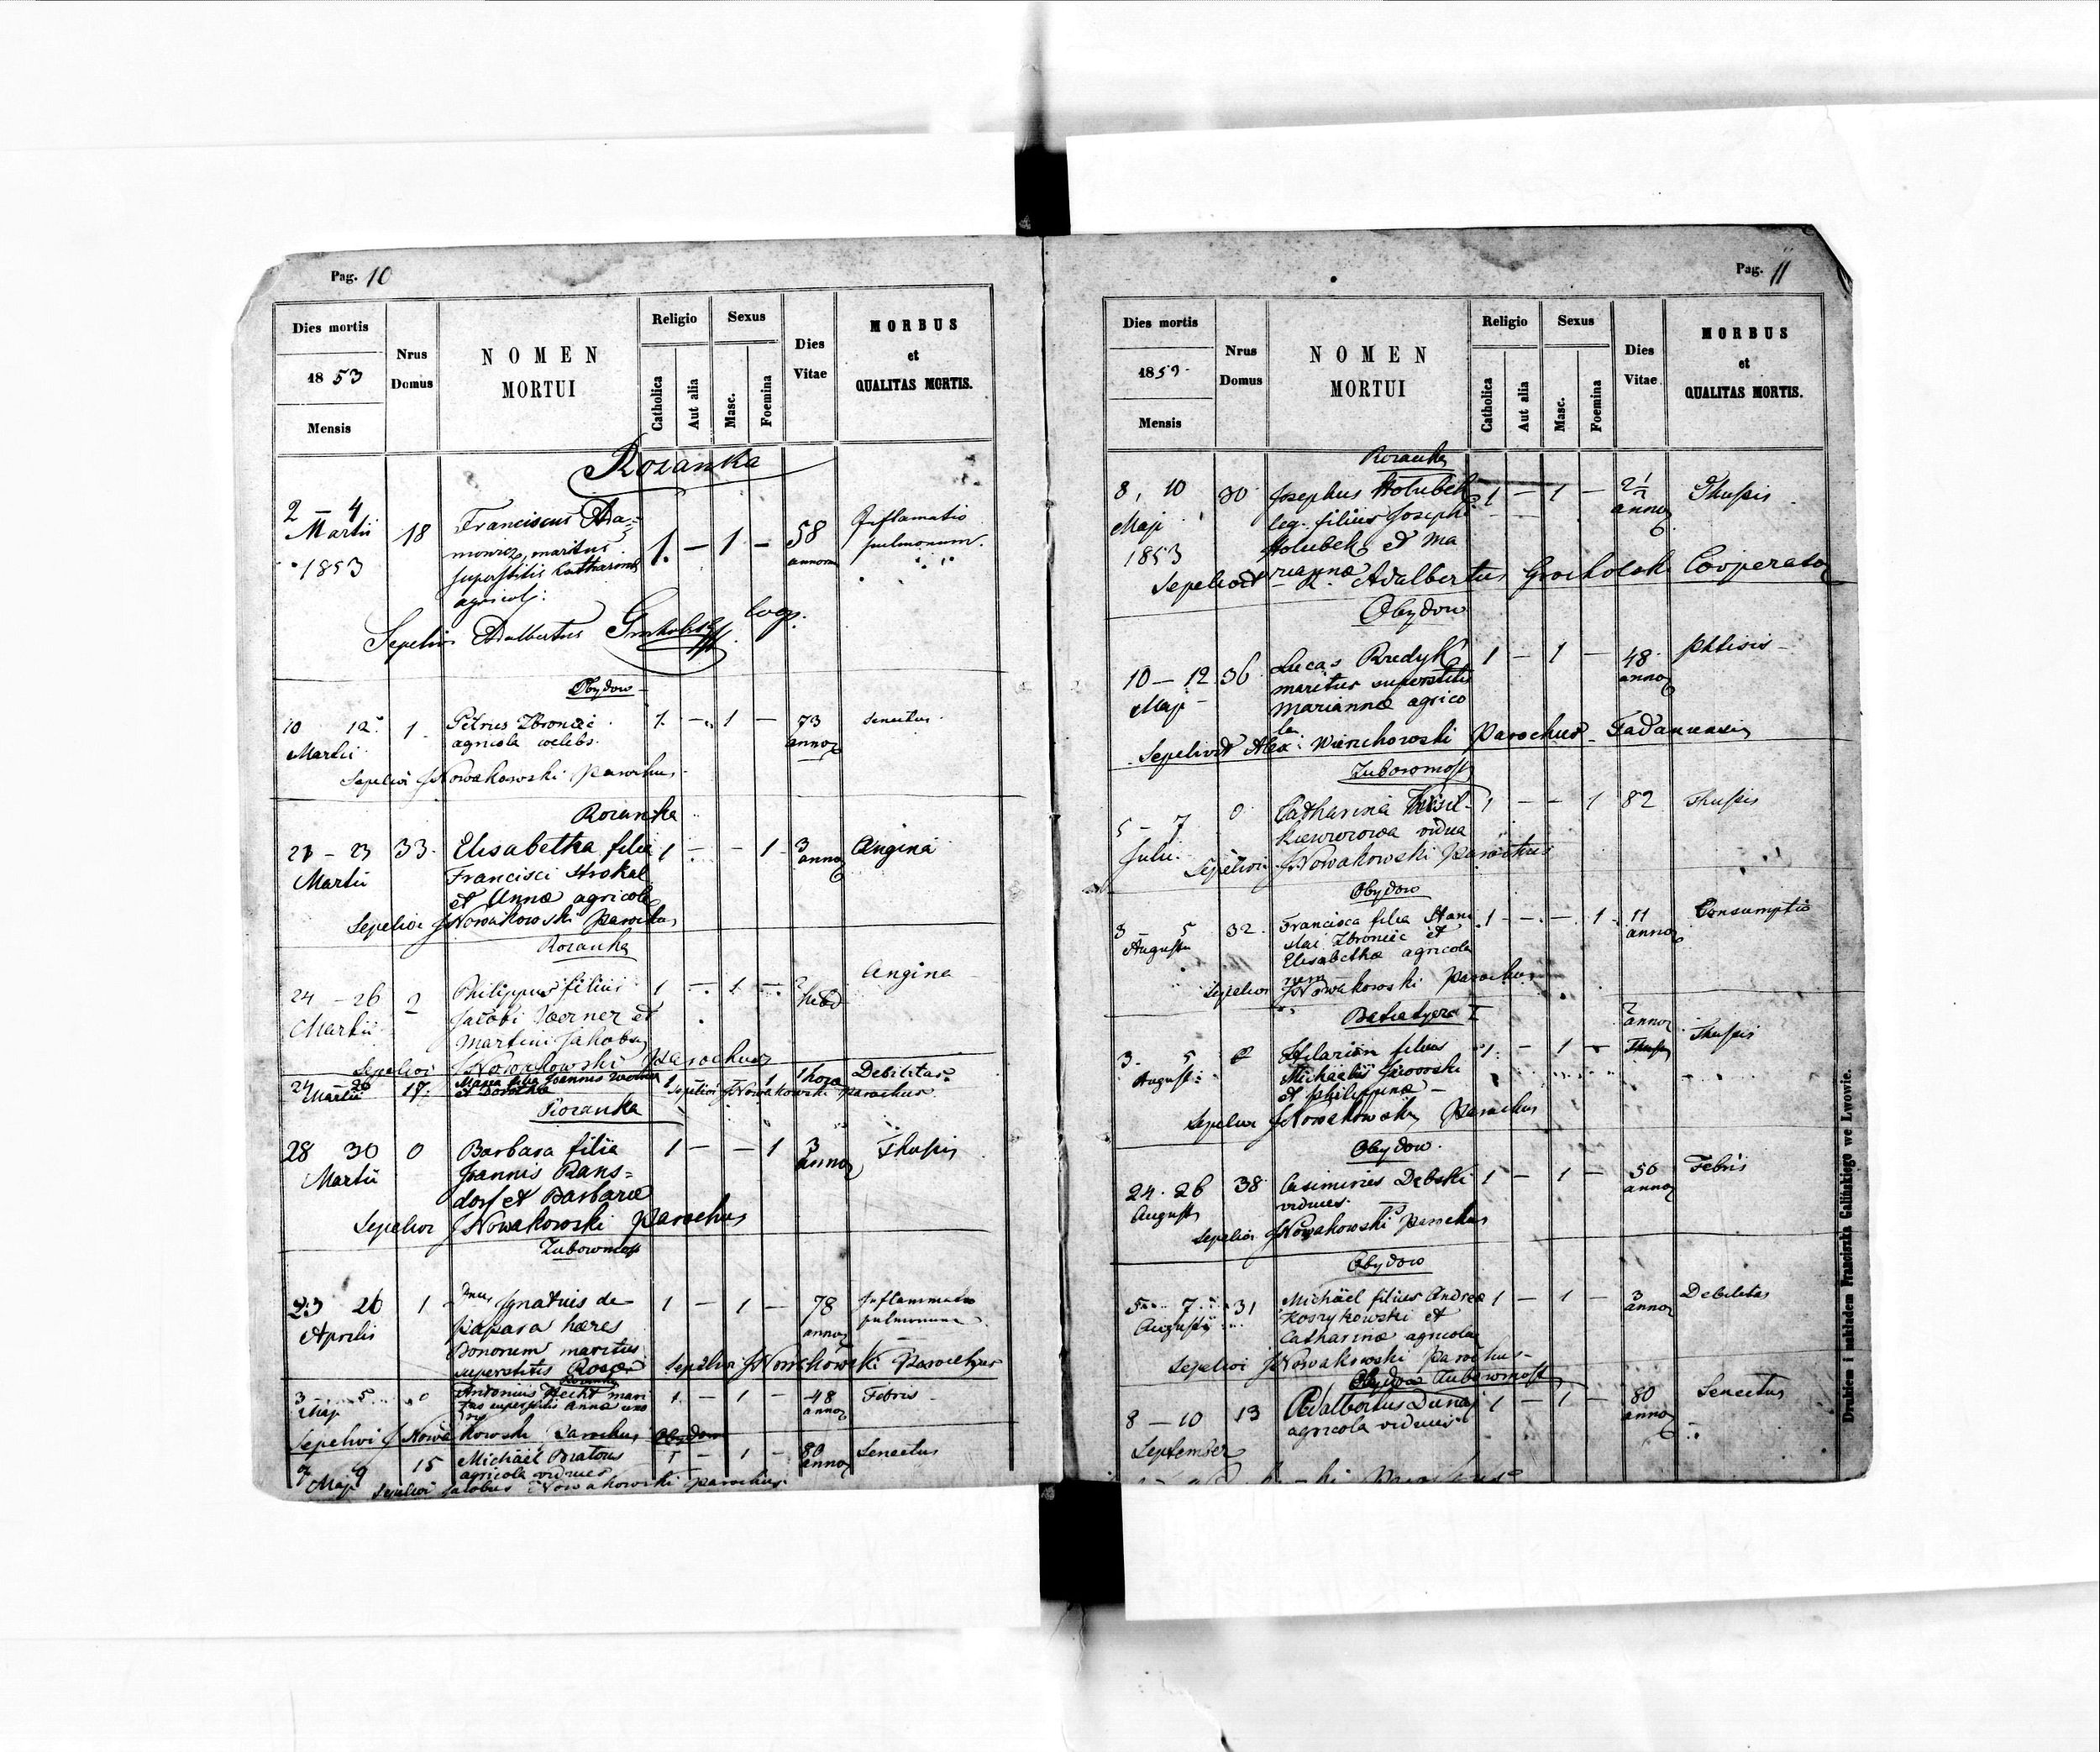 Pag. 10
Dies mortis
1853
Mensis
Nrus
Domus
NOMEN
MORTUI
Religio
Catholica
Aut alia
Sexus
Masc.
Foemina
Dies
Vitae
MORBUS
et
QUALITAS MORTIS.
Rozanka
2 – 4
Martii
1853
18
Franciscus
maritus
superstitis Katharinæ
agricola
1. – 1 –
58
annorum
Inflamatio
pulmonum
Sepelivi Adalbertus coop.
Obydow
10 12
Martii
1
Petrus Zbroniec
agricola celebs.
1. – 1 –
73
annor
senectus
Sepelivi J Nowakowski Parochus
Rozanka
21 – 23
Martii
33.
Elisabetha filia
Francisci
et Annæ agricola
1 – – 1
3
annor
Angina
Sepelivi J Nowakowski Parochus
Rozanka
24 – 26
Martii
2
Philippus filius
Jacobi Werner et
1 – 1 –
2
hebd
Angina
Sepelivi J Nowakowski Parochus
24 – 26
Martii
17.
Maria filia Joannis Werner
et Dorothea
1 hora
Debilitas
Sepelivi J Nowakowski Parochus
Rozanka
28 30
Martii
0
Barbara filia
Joannis Rans=
dorf et Barbaræ
1 – – 1
3
annor
Thussis
Sepelivi J Nowakowski Parochus
Zubowmost
23 26
Aprilis
1
Ignatius de
Papara hæres
Bonorum maritus
superstitis Rosæ
1 – 1 –
78
annor
Inflammatio
pulmonum
Sepelivi J Nowakowski Parochus
Rozanka
3 – 5
Maji
0
Antonius Hecht mari
tus superstitis Annæ uxo
ris
1. – 1 –
48
annor
Febris
Sepelivi J Nowakowski Parochus
Obydow
7 9
Maji
15
Michäel Bratous
agricola viduus
1 – 1 –
80
annor
Senectus
Sepelivi Jacobus Nowakowski Parochus
Pag. 11
Dies mortis
1853
Mensis
Nrus
Domus
NOMEN
MORTUI
Religio
Catholica
Aut alia
Sexus
Masc.
Foemina
Dies
Vitae
MORBUS
et
QUALITAS MORTIS.
Rozanka
8, 10
Maji
1853
30
Josephus Holubek
leg. filius Josephi
Holubek et Ma
riannæ
1 – 1 –
2 1/2
annor
Thussis
Sepelivit Adalbertus Grocholski Cooperator
Obydow
10 – 12
Maji
36
Lucas Rudyk
maritus superstitis
Mariannæ agrico
la
1 – 1 –
48
annor
phtisis
Sepelivit Alex: Wierzchowski Parochus
Zubowmost
5 – 7
Julii
0
Catharina
vidua
1 – – 1
82
Thussis
Sepelivi J Nowakowski Parochus
Obydow
3 – 5
Augusti
32.
Francisca filia Stani
slai Zbroniec et
Elisabethæ agricola
rum
1 – – 1
11
annor
Consumptio
Sepelivi J Nowakowski Parochus
Batiatycze
3. 5
Augusti
Hilarion filius
Michaelis
et philippinæ
1. – 1 –
2
annor
Thussis
Sepelivi J Nowakowski Parochus
Obydow.
24. 26
Augusti
38
Casimirus Debski
viduus
1 – 1 –
50
annor
Febris
Sepelivi J Nowakowski Parochus
Obydow
5 7
Augusti
31
Michäel filius Andreæ
Koszykowski et
Catharinæ agricola
1 – 1 –
3
annor
Debilitas
Sepelivi J Nowakowski Parochus
Zubowmost
8 – 10
September
13
Adalbertus Dunaj
agricola viduus
1 – 1 –
80
annor
Senectus
Drukiem i nakładem Franciszka Galińskiego we Lwowie.